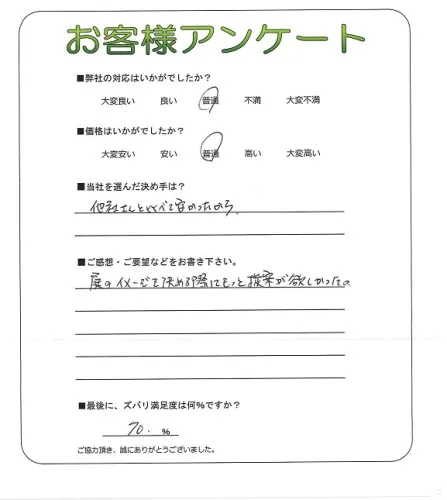 お客様アンケート
■弊社の対応はいかがでしたか?
大変良い 良い 普通 不満 大変不満
■価格はいかがでしたか?
大変安い 安い 普通 高い 大変高い
■当社を選んだ決め手は?
他社さんとくらべて安かったから。
■ご感想・ご要望などをお書き下さい。
のイメージを決める際にもっと提案が欲しかった
■最後に、ズバリ満足度は何%ですか?
70. %
ご協力頂き、誠にありがとうございました。